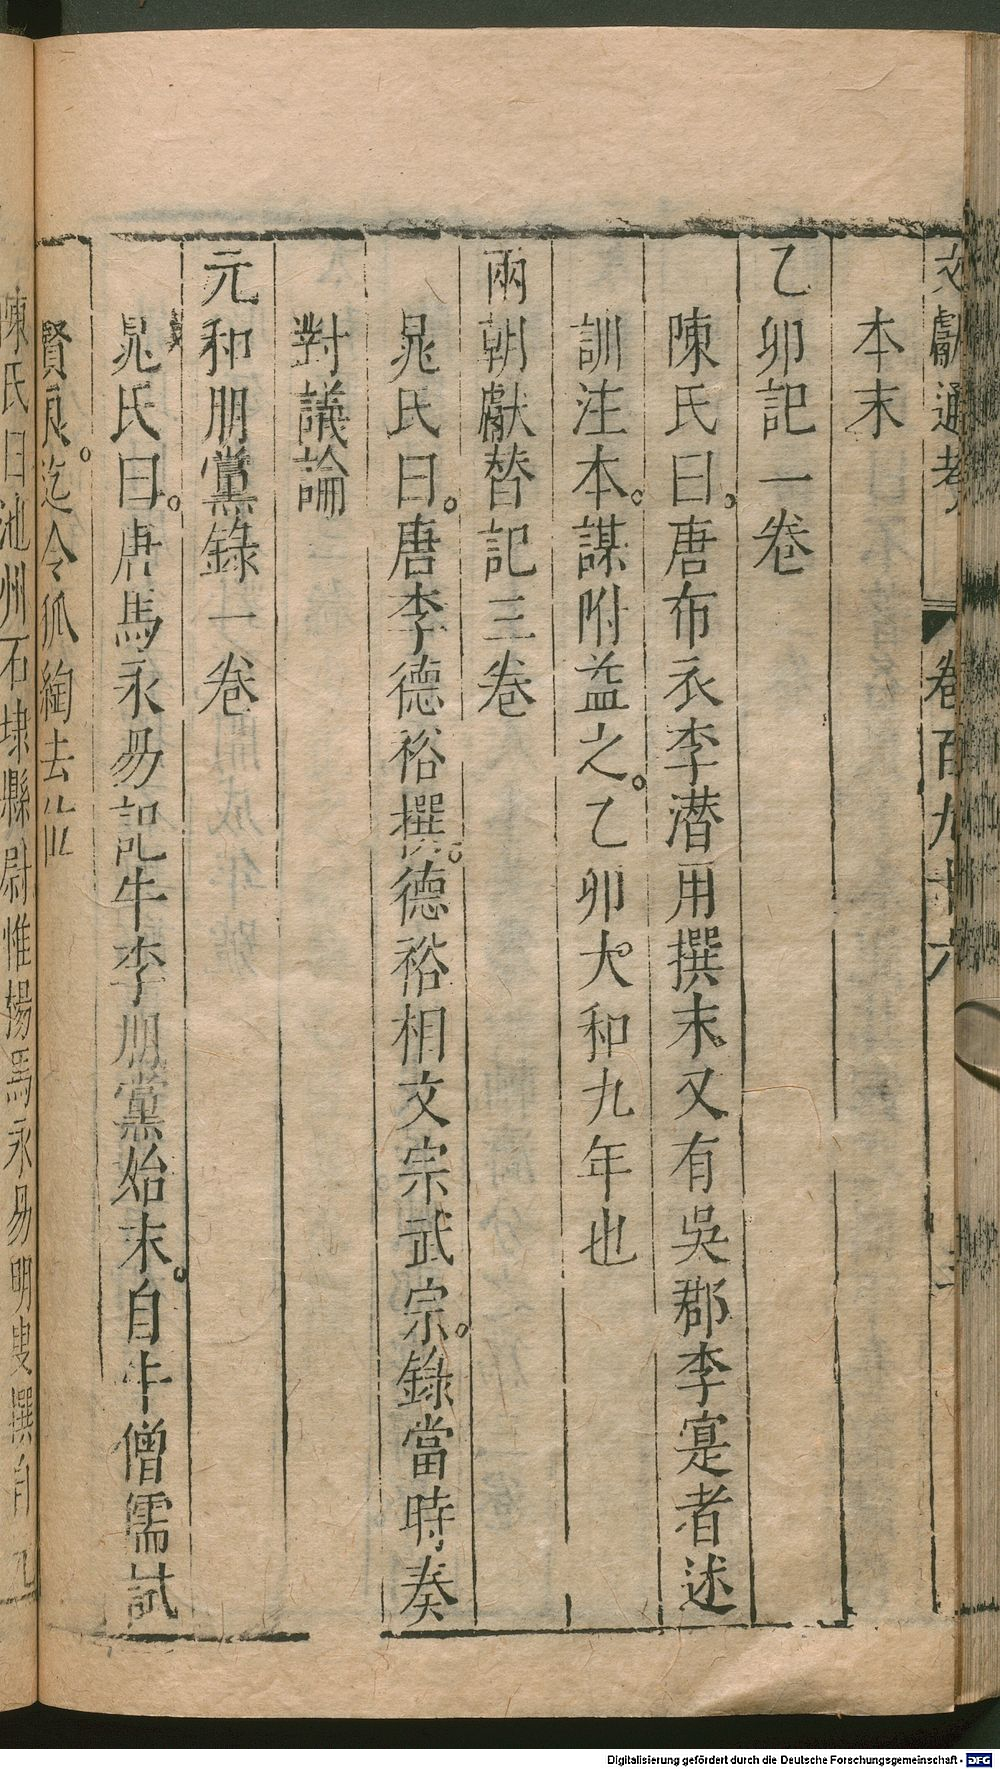 文獻通考 卷百九十六
本末
乙卯記一卷
陳氏曰。唐布衣李潜用撰末。又有吳郡李寔者述
訓注本。謀附益之。乙卯大和九年也
兩朝獻替記三卷
晁氏曰。唐李德裕撰。德裕相文宗武宗。錄當時奏
對議論
元和朋黨錄一卷
晁氏曰。唐馬永易記牛李朋黨始末。自牛僧儒試
賢良。迄令狐綯去位
陳氏曰池州石埭縣尉惟揚馬永易明叟撰自元
Digitalisierung gefördert durch die Deutsche Forschungsgemeinschaft - DFG